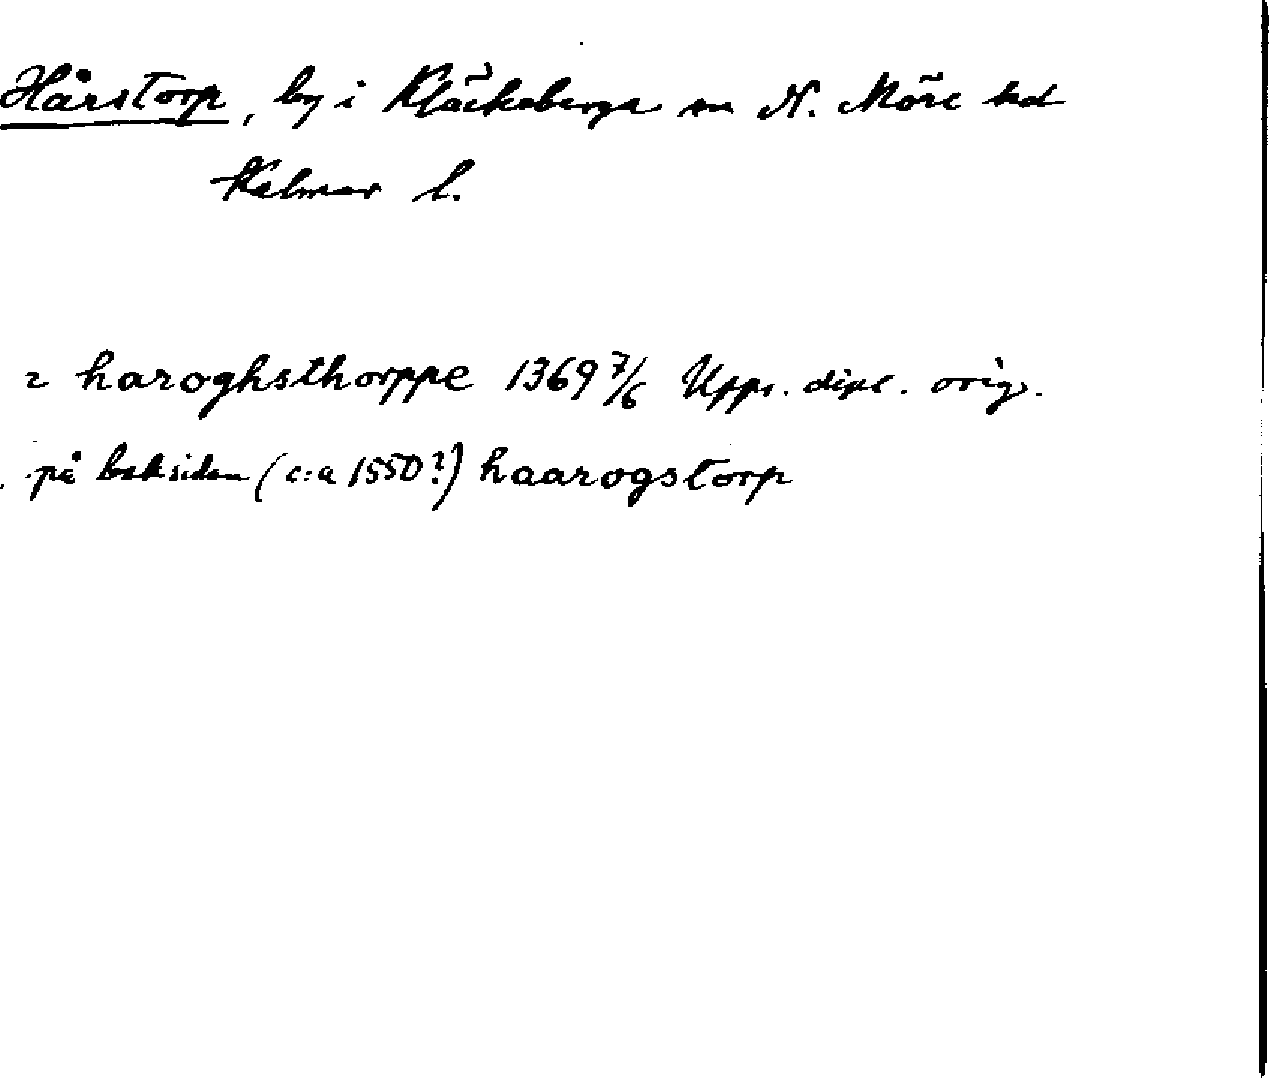 Hårstorp, by i Kläckeberga sn N. Möre hd
Kalmar l.
i haroghsthorppe 1369 7/6 Upps. dipl. orig.
på baksidan (c:a 1550?) haarogstorp